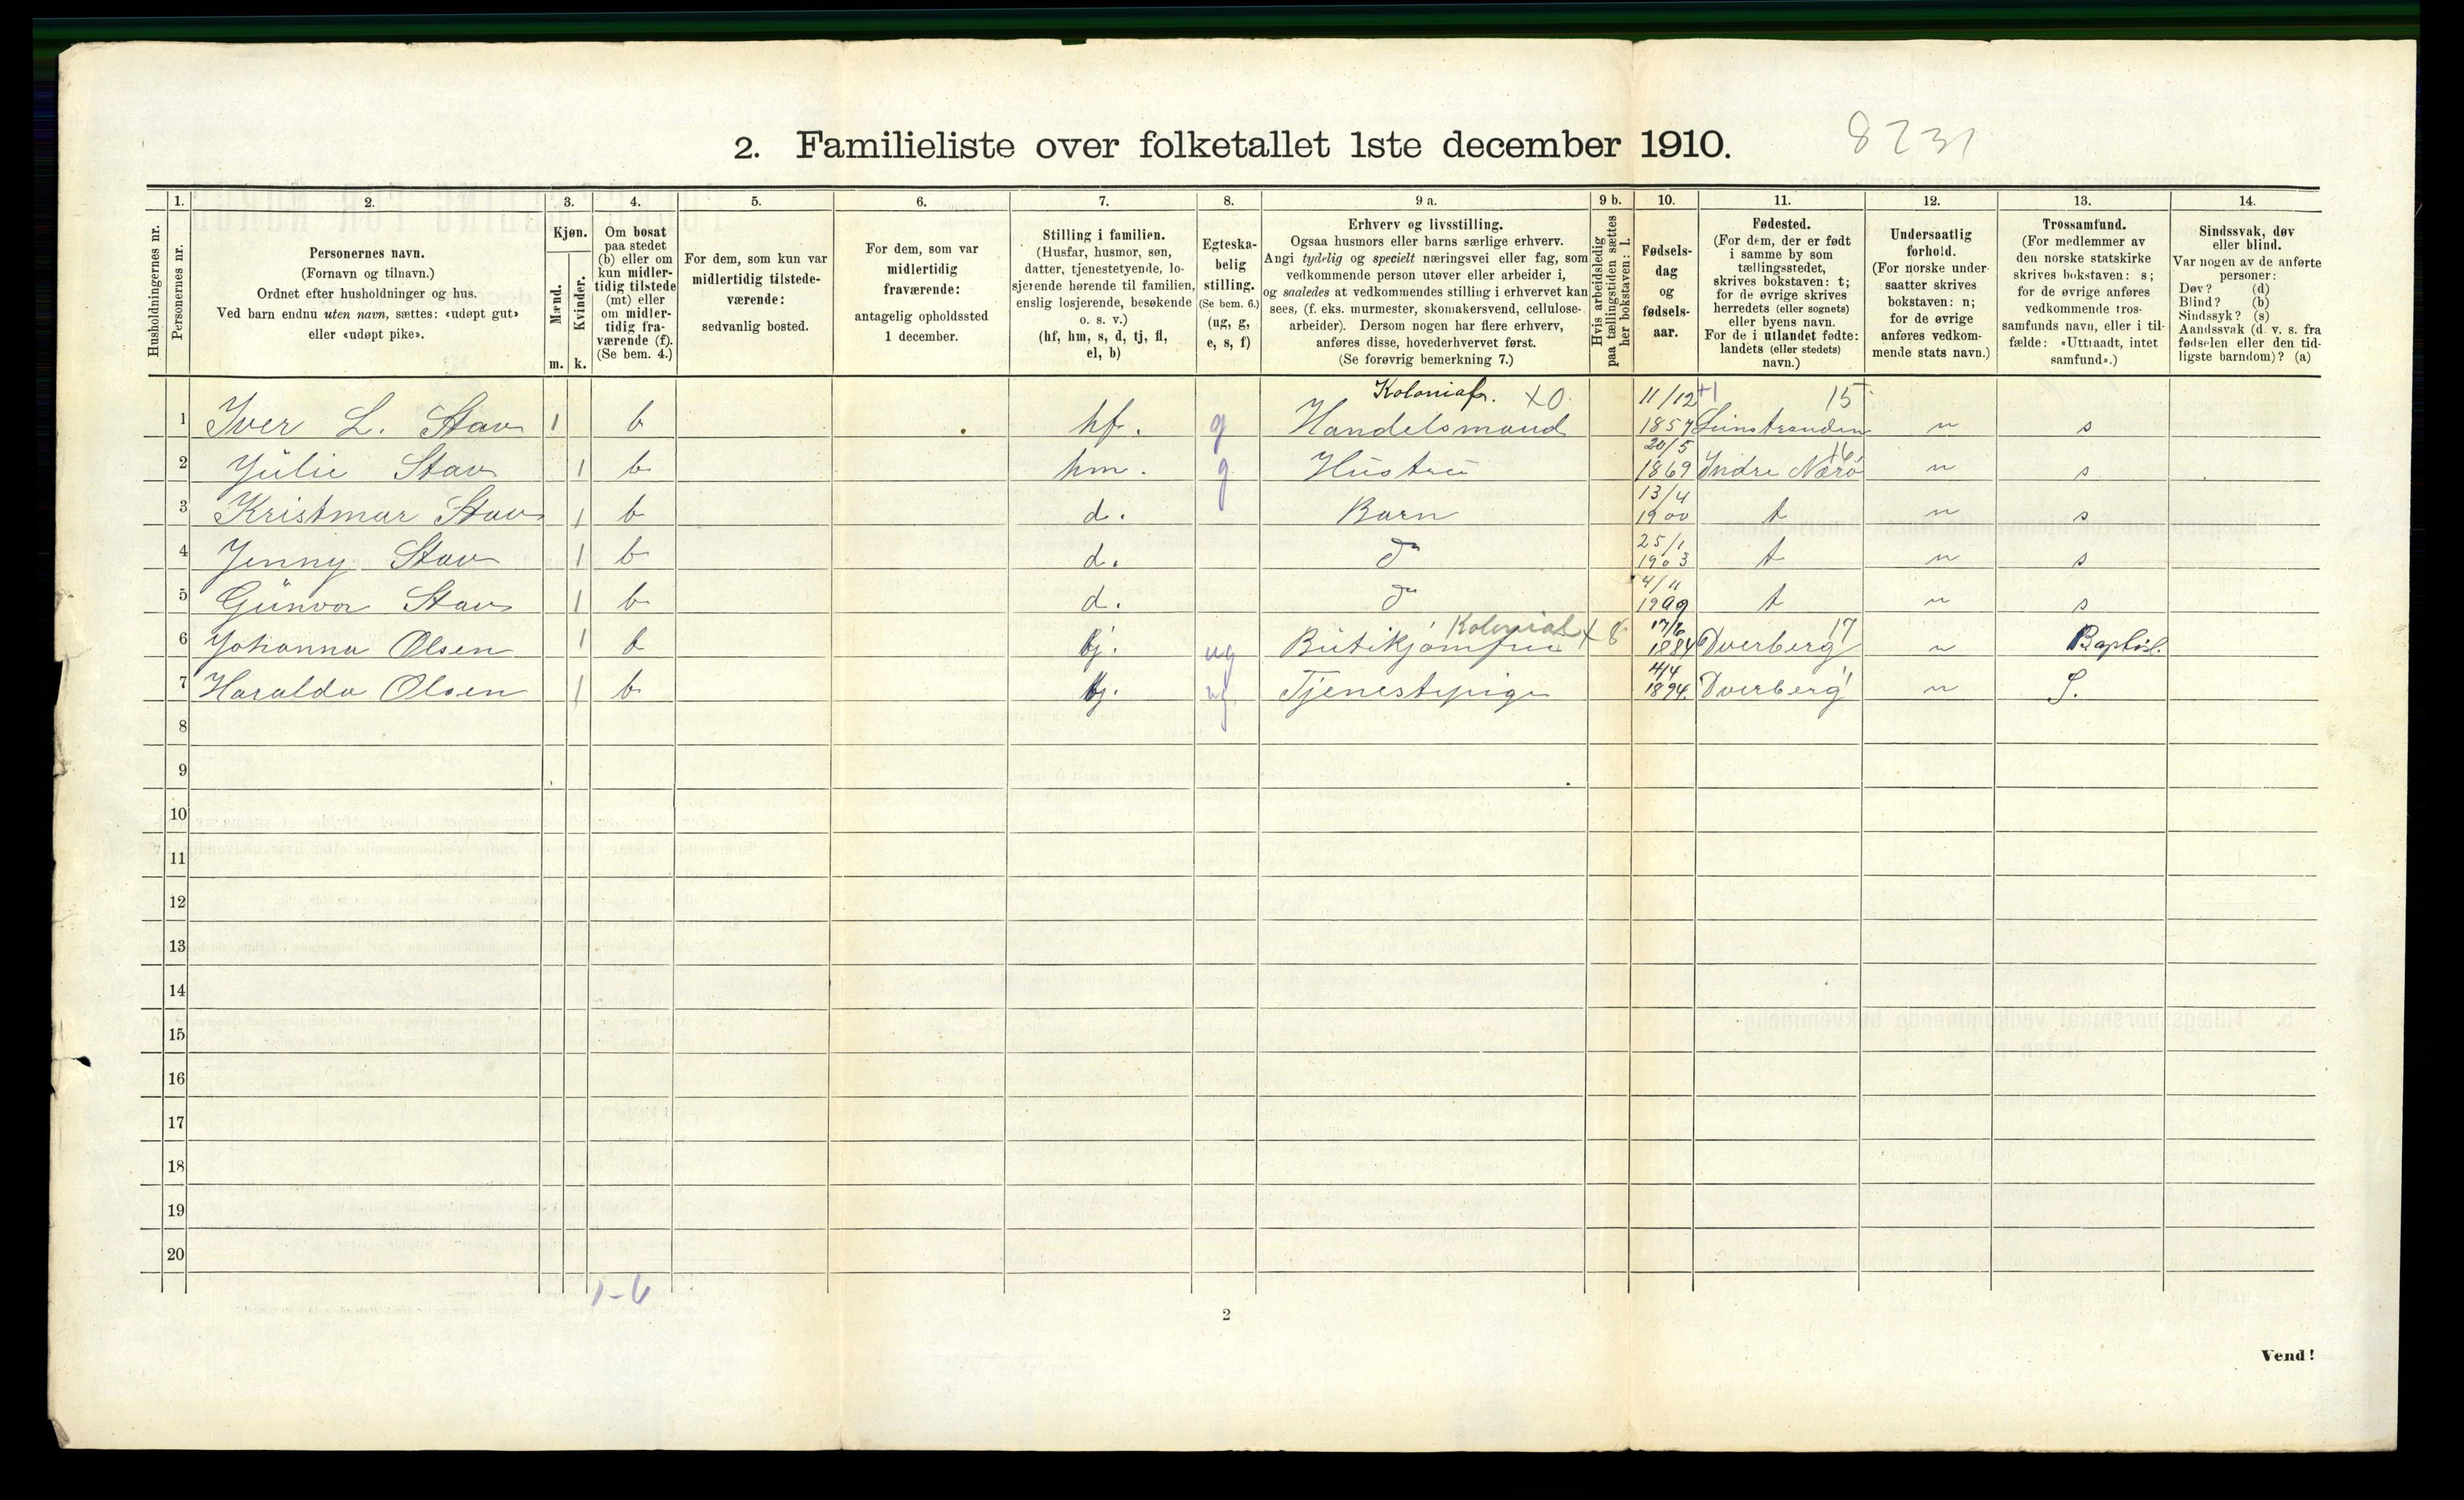 2. Familieliste over folketallet 1ste december 1910.
8231
Husholdningernes nr.
1.
Personernes nr.
2.
Personernes navn.
(Fornavn og tilnavn.)
Ordnet efter husholdninger og hus.
Ved barn endnu uten navn, sættes: «udøpt gut»
eller «udøpt pike».
3.
Kjøn.
Mænd.
Kvinder.
m. k.
4.
Om bosat
paa stedet
(b) eller om
kun midler-
tidig tilstede
(mt) eller
om midler-
tidig fra-
værende (f).
(Se bem. 4.)
5.
For dem, som kun var
midlertidig tilstede-
værende:
sedvanlig bosted.
6.
For dem, som var
midlertidig
fraværende:
antagelig opholdssted
1 december.
7.
Stilling i familien.
(Husfar, husmor, søn,
datter, tjenestetyende, lo-
sjerende hørende til familien,
enslig losjerende, besøkende
o. s. v.)
(hf, hm, s, d, tj, fl,
el, b)
8.
Egteska-
belig
stilling.
(Se bem. 6.)
(ug, g,
e, s, f)
9 a.
Erhverv og livsstilling.
Ogsaa husmors eller barns særlige erhverv.
Angi tydelig og specielt næringsvei eller fag, som
vedkommende person utøver eller arbeider i,
og saaledes at vedkommendes stilling i erhvervet kan
sees, (f. eks. murmester, skomakersvend, cellulose-
arbeider). Dersom nogen har flere erhverv,
anføres disse, hovederhvervet først.
(Se forøvrig bemerkning 7.)
9 b.
Hvis arbeidsledig
paa tællingstiden sættes
her bokstaven: l.
10.
Fødsels-
dag
og
fødsels-
aar.
11.
Fødested.
(For dem, der er født
i samme by som
tællingsstedet,
skrives bokstaven: t;
for de øvrige skrives
herredets (eller sognets)
eller byens navn.
For de i utlandet fødte:
landets (eller stedets)
navn.)
12.
Undersaatlig
forhold.
(For norske under-
saatter skrives
bokstaven: n;
for de øvrige
anføres vedkom-
mende stats navn.)
13.
Trossamfund.
(For medlemmer av
den norske statskirke
skrives bokstaven: s;
for de øvrige anføres
vedkommende tros-
samfunds navn, eller i til-
fælde: «Uttraadt, intet
samfund».)
14.
Sindssvak, døv
eller blind.
Var nogen av de anførte
personer:
Døv? (d)
Blind? (b)
Sindssyk? (s)
Aandssvak (d. v. s. fra
fødselen eller den tid-
ligste barndom)? (a)
Kolonialr. X0. 11/12 +1 15
1 Iver L. Stav 1 b hf. g Handelsmand 1857 Leinstranden n s
20/5 16
2 Julie Stav 1 b hm. g Hustru 1869 Indre Nærø n s
13/4
3 Kristmar Stav 1 b d. Barn 1900 t n s
25/1
4 Jenny Stav 1 b d. do 1903 t n s
4/11
5 Gunvor Stav 1 b d. do 1909 t n s
Kolonial X8 17/6 17
6 Johanna Olsen 1 b tj. ug Butikjomfru 1884 Dverberg n Baptist.
4/4
7 Haralda Olsen 1 b tj. ug Tjenestepige 1894. Dverberg n S.
8
9
10
11
12
13
14
15
16
17
18
19
20
1-6
2
Vend!